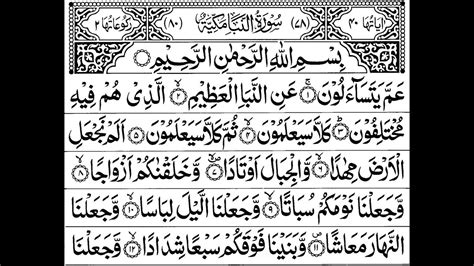 اٰیَاتُهَا ٤٠ (٧٨) سُوْرَةُ النَّبَاِ مَكِّيَّةٌ (٨٠) رُكُوْعَاتُهَا ٢
بِسْمِ اللّٰهِ الرَّحْمٰنِ الرَّحِيْمِ
عَمَّ يَتَسَآءَلُوْنَ ۝١ عَنِ النَّبَاِ الْعَظِيْمِ ۝٢ الَّذِيْ هُمْ فِيْهِ
مُخْتَلِفُوْنَ ۝٣ كَلَّا سَيَعْلَمُوْنَ ۝٤ ثُمَّ كَلَّا سَيَعْلَمُوْنَ ۝٥ اَلَمْ نَجْعَلِ
الْاَرْضَ مِهٰدًا ۝٦ وَّالْجِبَالَ اَوْتَادًا ۝٧ وَّخَلَقْنٰكُمْ اَزْوَاجًا ۝٨
وَّجَعَلْنَا نَوْمَكُمْ سُبَاتًا ۝٩ وَّجَعَلْنَا الَّيْلَ لِبَاسًا ۝١٠ وَّجَعَلْنَا
النَّهَارَ مَعَاشًا ۝١١ وَّبَنَيْنَا فَوْقَكُمْ سَبْعًا شِدَادًا ۝١٢ وَّجَعَلْنَا